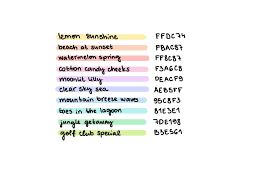 lemon sunshine FFDC74
beach at sunset FBAC87
watermelon spring FF8C87
cotton candy cheeks F3A6C8
moonlit lilly DEACF9
clear sky sea AEB5FF
mountain breeze waves 95C8F3
toes in the lagoon 81E3E1
jungle getaway 7DE198
golf club special B3E561